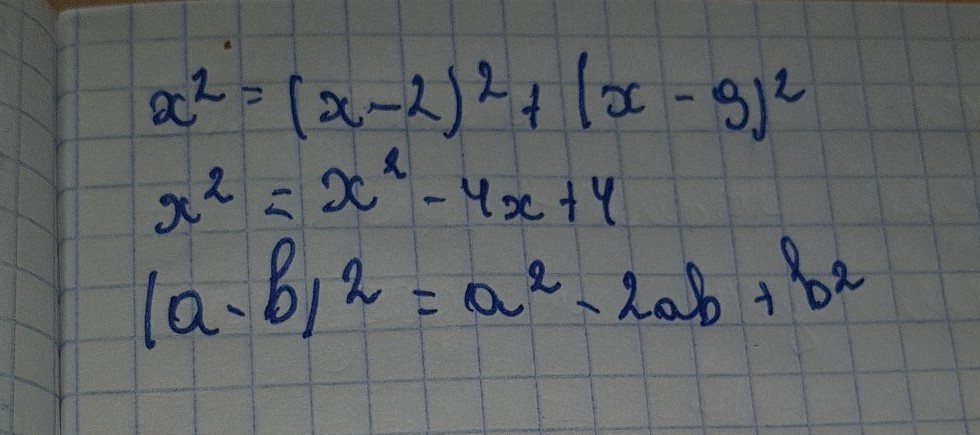 x² = (x-2)² + (x-9)²
x² = x² - 4x + 4
(a-b)² = a² - 2ab + b²